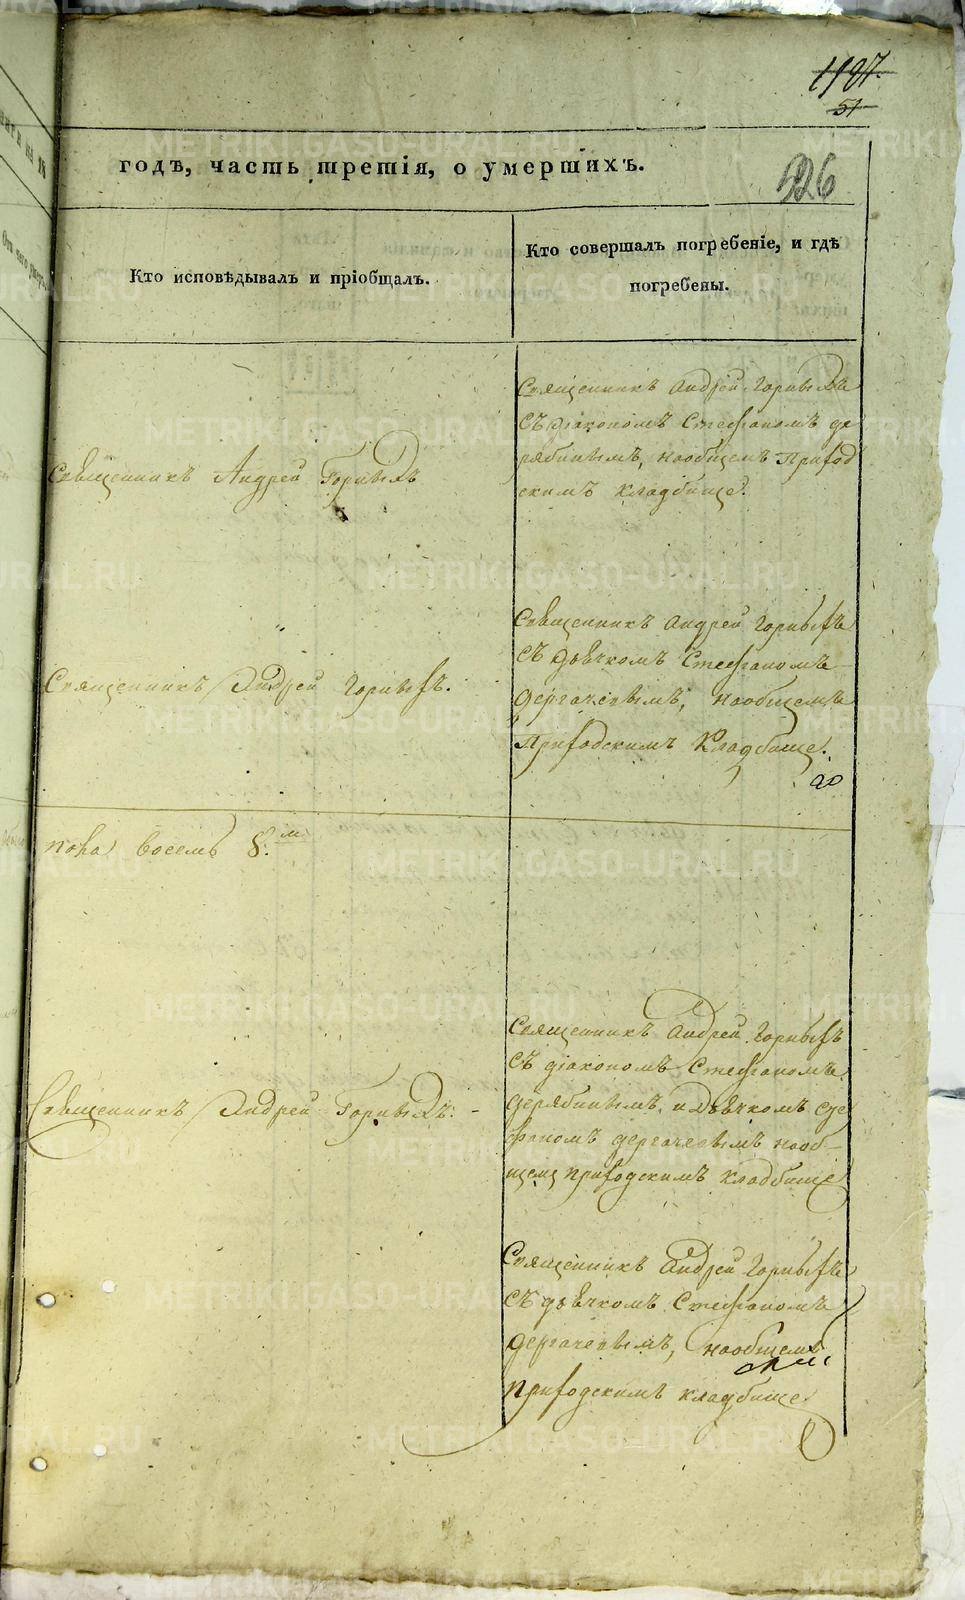 1187.
51
226
годъ, часть третія, о умершихъ.
Кто исповѣдывалъ и пріобщалъ.
Кто совершалъ погребеніе, и гдѣ
погребены.
Священникъ Андрей Горныхъ
Священникъ Андрей Горныхъ
съ діакономъ Стефаномъ де
рябинымъ, наобщемъ Приход
скимъ кладбище.
Священникъ Андрей Горныхъ.
Священникъ Андрей Горныхъ
съ дьячкомъ Стефаномъ
дергачевымъ, наобщемъ
Приходскимъ Кладбище.
пола восемь 8.м
Священникъ Андрей Горныхъ.
Священникъ Андрей Горныхъ
съ діакономъ Стефаномъ
дерябинымъ, и дьячкомъ сте
фаномъ дергачевымъ нооб-
щемъ приходскимъ кладбище
Священникъ Андрей Горныхъ
съ дьячкомъ Стефаномъ
дергачевымъ, наобщемъ
приходскимъ кладбище
METRIKI.GASO-URAL.RU